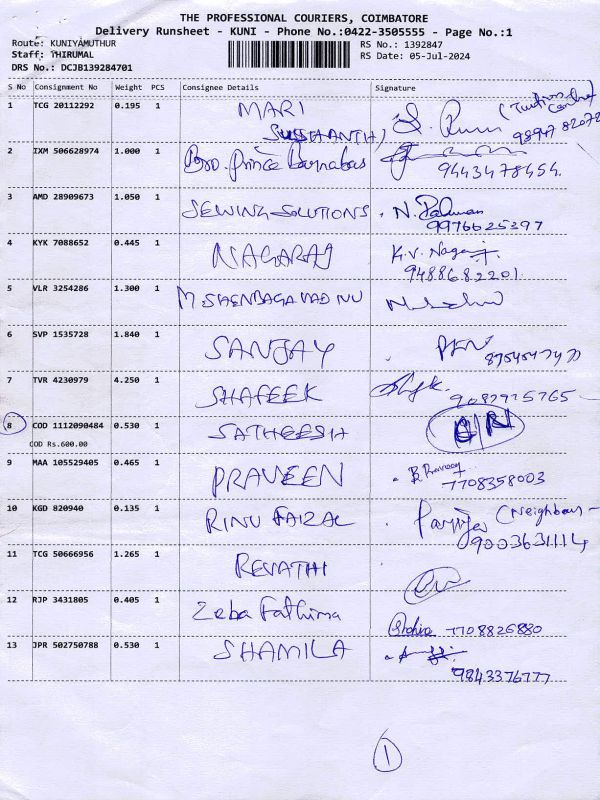 THE PROFESSIONAL COURIERS, COIMBATORE
Delivery Runsheet - KUNI - Phone No.:0422-3505555 - Page No.:1
Route: KUNIYAMUTHUR
RS No.: 1392847
Staff: THIRUMAL
RS Date: 05-Jul-2024
DRS No.: DCJB139284701
S No Consignment No Weight PCS Consignee Details Signature
1 TCG 20112292 0.195 1 MARI
SUSHANTH
2 IXM 506628974 1.000 1 Bro. Prince Barnabas
9443478454.
3 AMD 28909673 1.050 1 SEWING SOLUTIONS
9976625397
4 KYK 7088652 0.445 1 NAGARAJ K.V. Nagaraj
9488682201.
5 VLR 3254286 1.300 1
6 SVP 1535728 1.840 1 SANJAY
7 TVR 4230979 4.250 1 SHAFEEK
8 COD 1112090484 0.530 1 SATHEESH
COD Rs.600.00
9 MAA 105529405 0.465 1 PRAVEEN
7708358003
10 KGD 820940 0.135 1 RINU FAIZAL (Neighbour-
9003631114
11 TCG 50666956 1.265 1 REVATHI
12 RJP 3431805 0.405 1 Zeba Fathima
7708826880
13 JPR 502750788 0.530 1 SHAMILA
9843376777
1